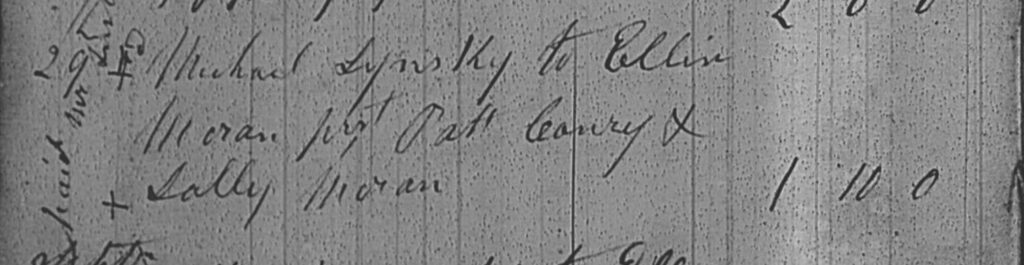 2 0 0
29 Michael Lynsky to Ellin
Moran prst Patt Conry &
Sally Moran 1 10 0
paid